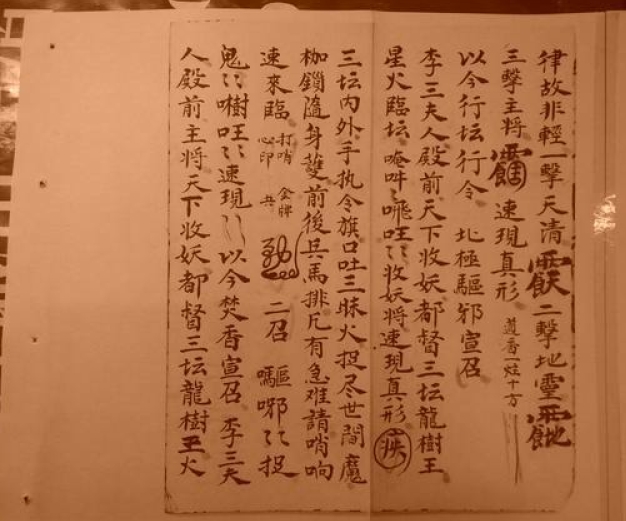 律故非輕一擊天清二擊地靈
三擊主將 速現真形 道香一炷十方
以今行坛行令 北極驅邪宣召
李三夫人殿前天下收妖都督三坛龍樹王
星火臨坛 唵吽 唵吽 收妖将速現真形
三坛内外手执令旗口吐三昧火捉尽世間魔
枷鎖隨身雙前後兵馬排兀有急难請哨响
速來臨 打哨 心印 金牌 二召 驅 捉
鬼 樹 速現 以今焚香宣召 李三夫
人殿前主将天下收妖都督三坛龍樹王火